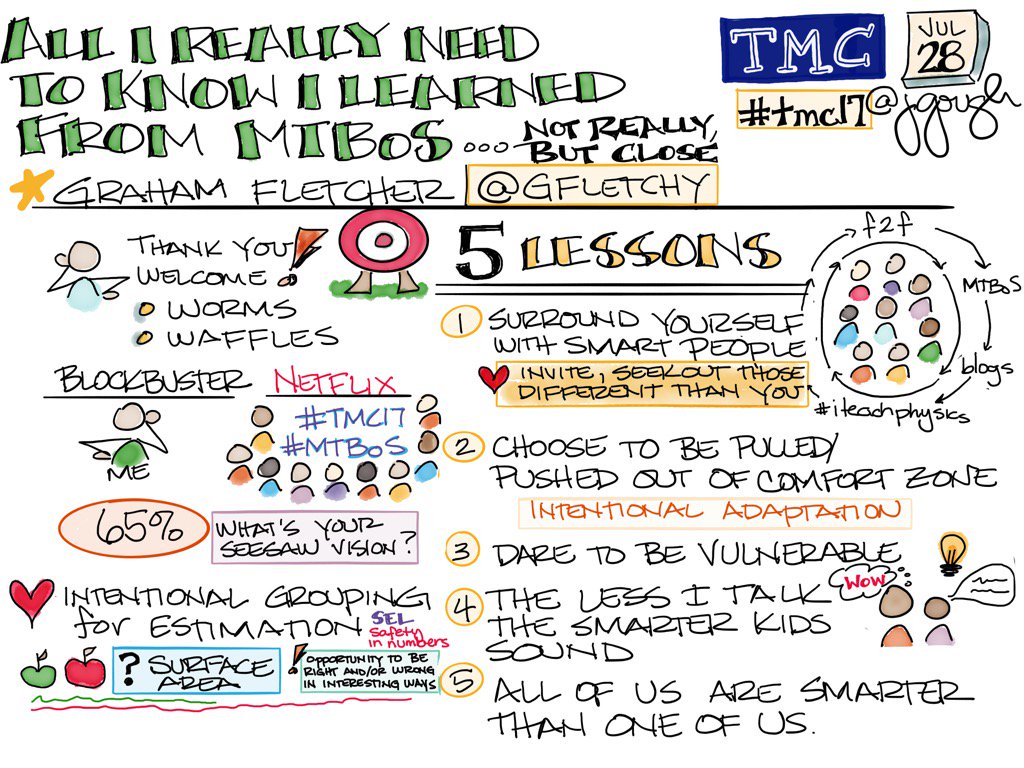 ALL I REALLY NEED
TO KNOW I LEARNED
FROM MTBoS...
NOT REALLY,
BUT CLOSE
TMC
JUL
28
#tmc17
@jgough
GRAHAM FLETCHER @GFLETCHY
THANK YOU!
WELCOME
WORMS
WAFFLES
BLOCKBUSTER
NETFLIX
ME
#TMC17
#MTBoS
65%
WHAT'S YOUR
SEESAW VISION?
INTENTIONAL GROUPING
for ESTIMATION
SEL
Safety
in numbers
? SURFACE
AREA
! OPPORTUNITY TO BE
RIGHT AND/OR WRONG
IN INTERESTING WAYS
5 LESSONS
1 SURROUND YOURSELF
WITH SMART PEOPLE
INVITE, SEEK OUT THOSE
DIFFERENT THAN YOU
f2f
MTBoS
blogs
#iteachphysics
2 CHOOSE TO BE PULLED/
PUSHED OUT OF COMFORT ZONE
INTENTIONAL ADAPTATION
3 DARE TO BE VULNERABLE
4 THE LESS I TALK
THE SMARTER KIDS
SOUND
WOW
5 ALL OF US ARE SMARTER
THAN ONE OF US.